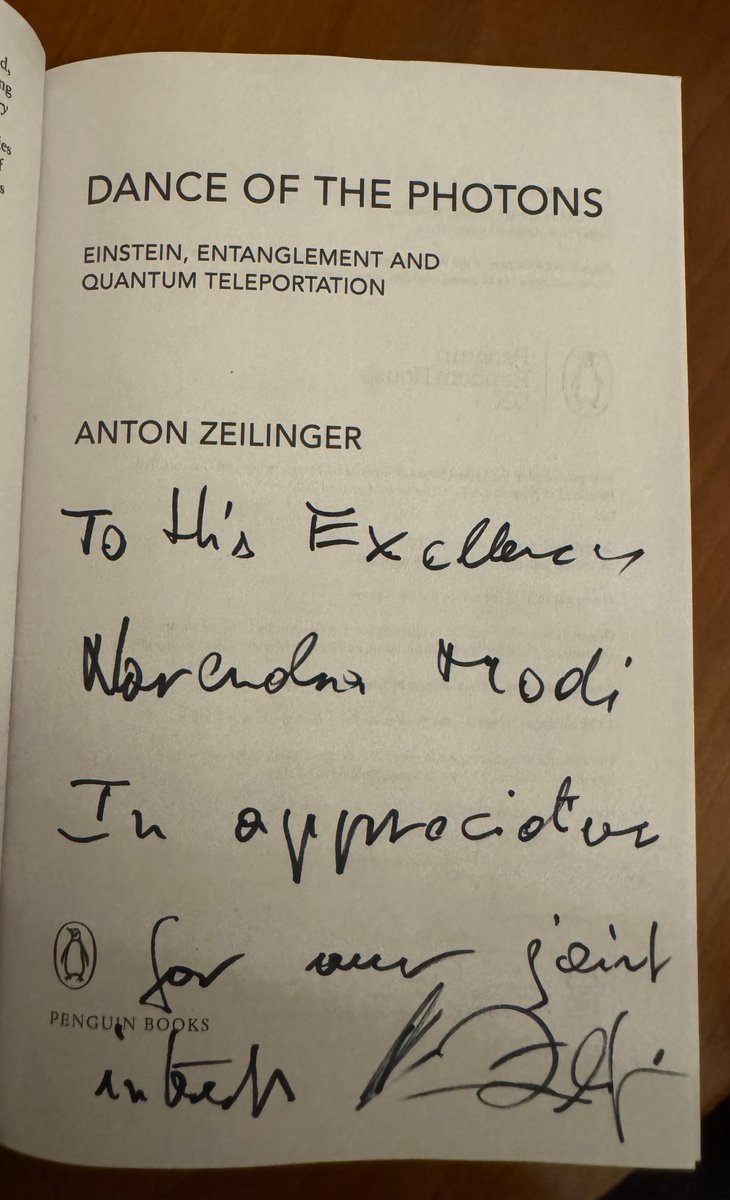 d,
ng
ry
ies
f
s
DANCE OF THE PHOTONS
EINSTEIN, ENTANGLEMENT AND
QUANTUM TELEPORTATION
ANTON ZEILINGER
To His Excellency
Narendra Modi
In appreciation
for our joint
PENGUIN BOOKS
interests